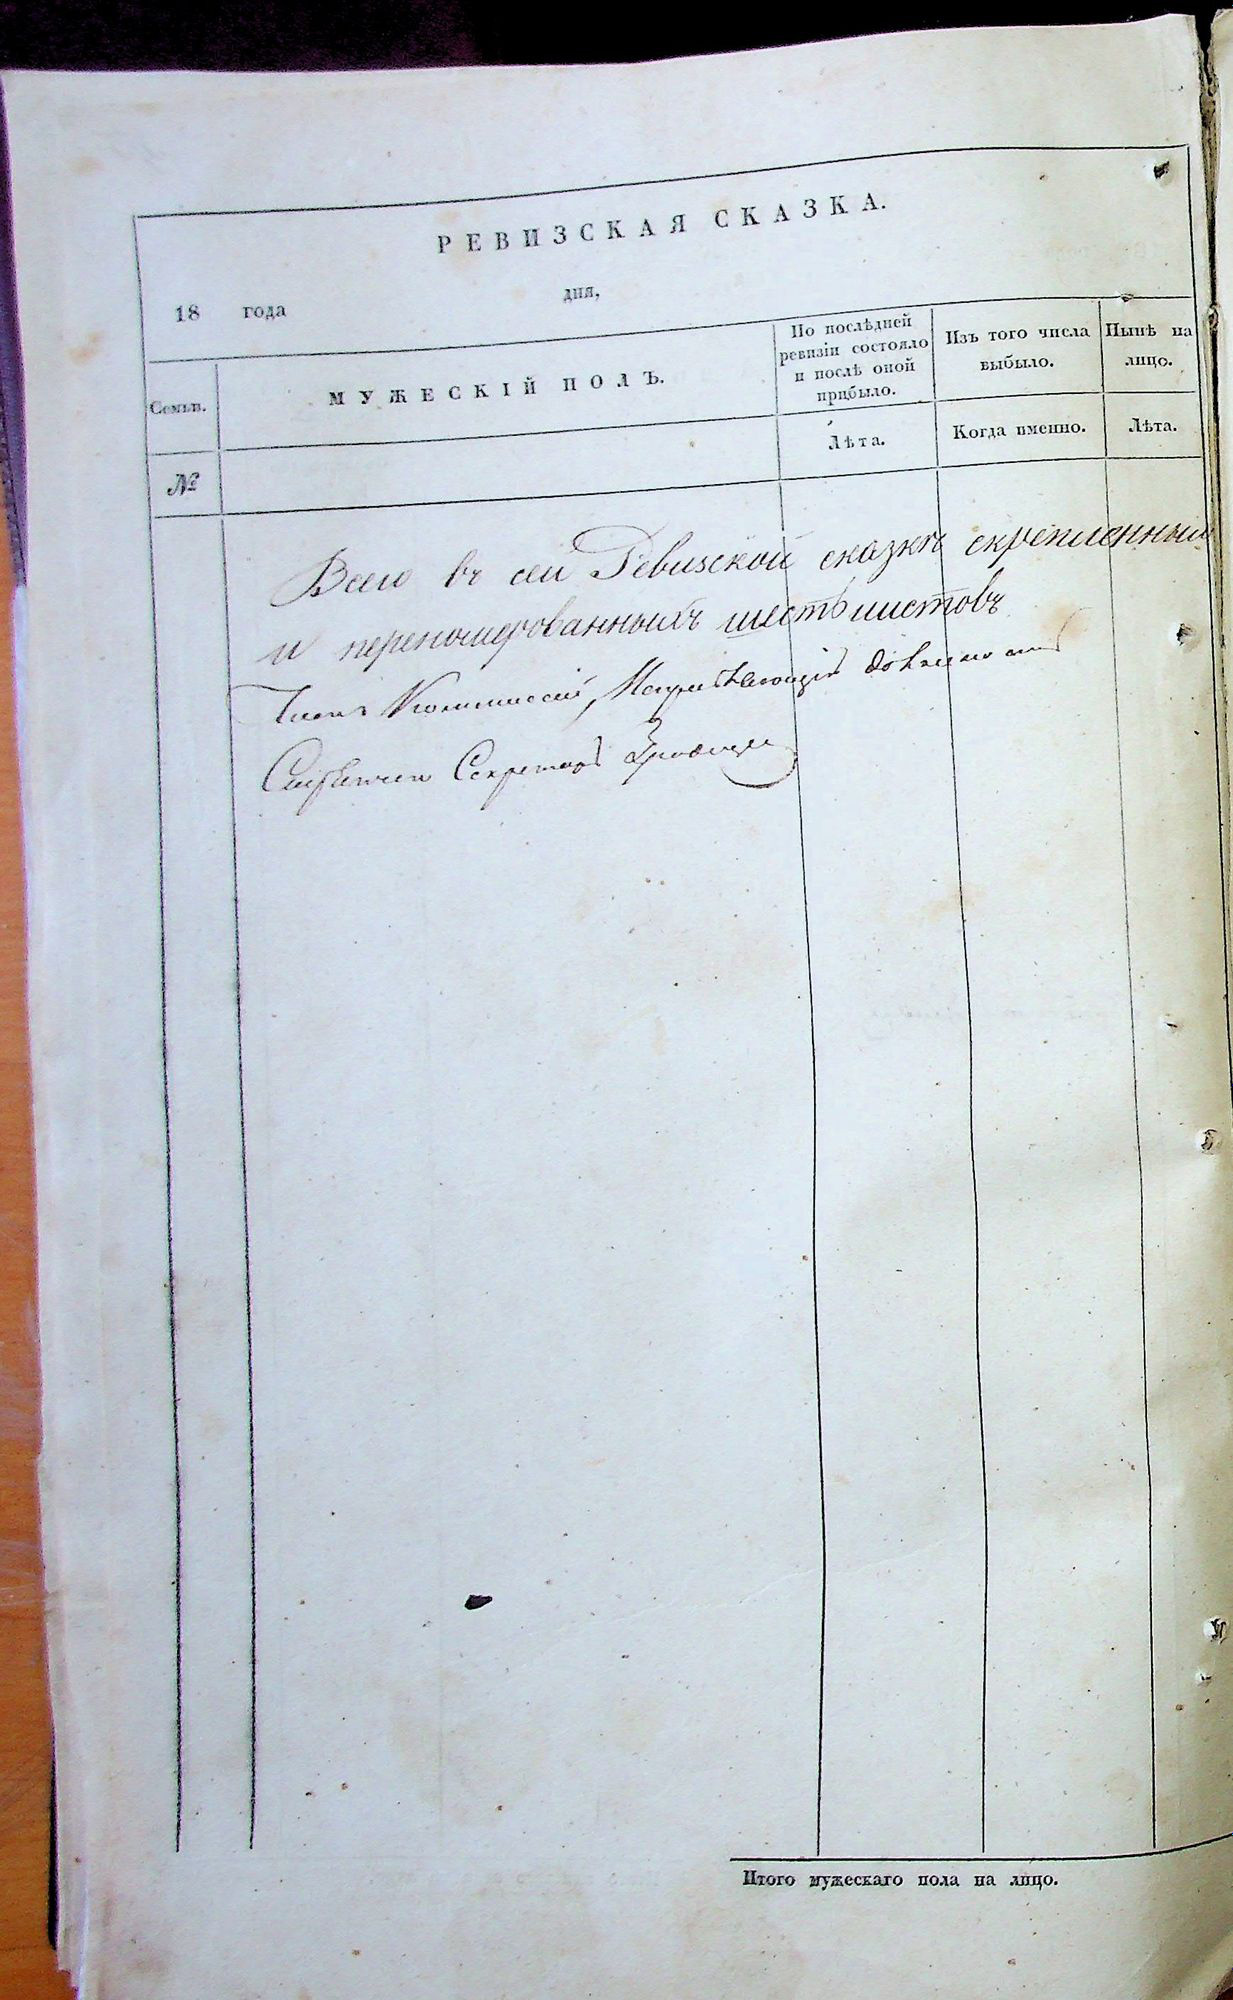 РЕВИЗСКАЯ СКАЗКА.
18 года дня,
Семьи.
МУЖЕСКІЙ ПОЛЪ.
По послѣдней
ревизіи состояло
и послѣ оной
прибыло.
Изъ того числа
выбыло.
Нынѣ на
лицо.
№
Лѣта.
Когда именно.
Лѣта.
Всего въ сей Ревизской сказкѣ скрепленныхъ
и перенумерованныхъ шесть листовъ
Членъ Коммиссіи, должность
Секретарь
Итого мужескаго пола на лицо.